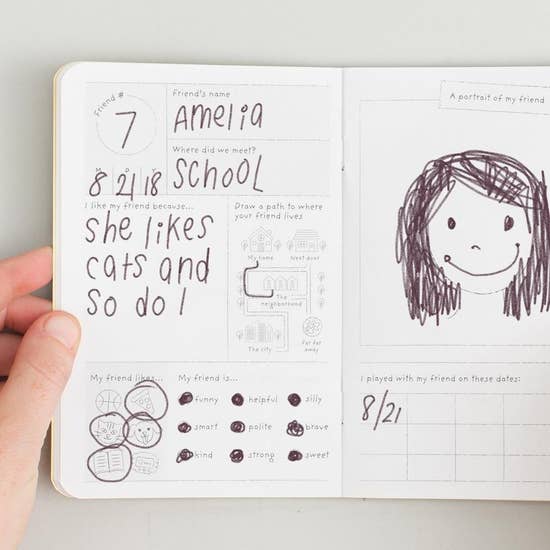 Friend #
7
Friend's name
Amelia
Where did we meet?
SCHOOL
M D Y
8 21 18
I like my friend because...
She likes
cats and
so do I
Draw a path to where
your friend lives
My home
Next door
The
neighborhood
The city
Far far
away
My friend likes...
My friend is...
funny
helpful
silly
smart
polite
brave
kind
strong
sweet
A portrait of my friend
I played with my friend on these dates:
8/21